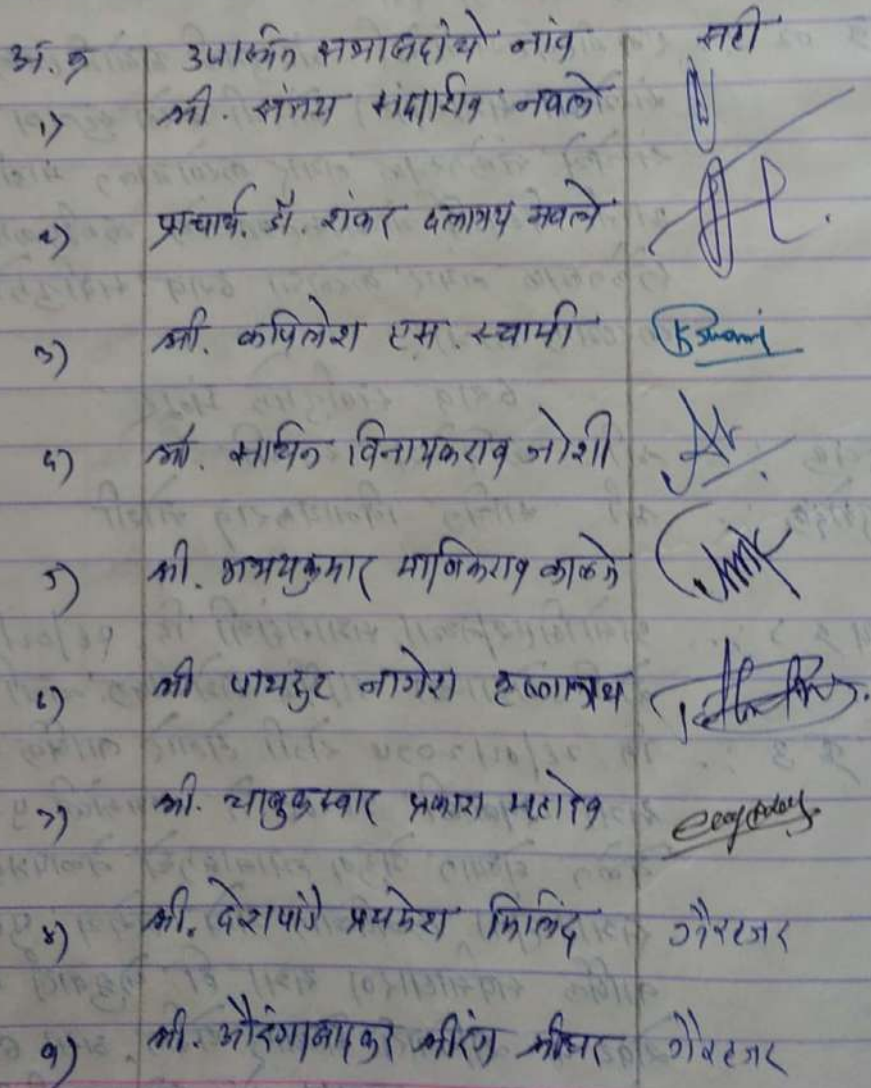 अ.क्र उपस्थित सभासदांचे नांव सही
१) श्री. संजय सदाशिव नवले
२) प्राचार्य. डॉ. शंकर दत्तात्रय नवले
३) श्री. कपिलेश एस. स्वामी KSwami
४) श्री. सचिन विनायकराव जोशी
५) श्री. अभयकुमार माणिकराव काळे
६) श्री पायघुट नागेश
७) श्री. चाबुकस्वार प्रकाश महादेव
८) श्री. देशपांडे प्रथमेश मिलिंद गैरहजर
९) श्री. औरंगाबादकर श्रीरंग श्रीधर गैरहजर